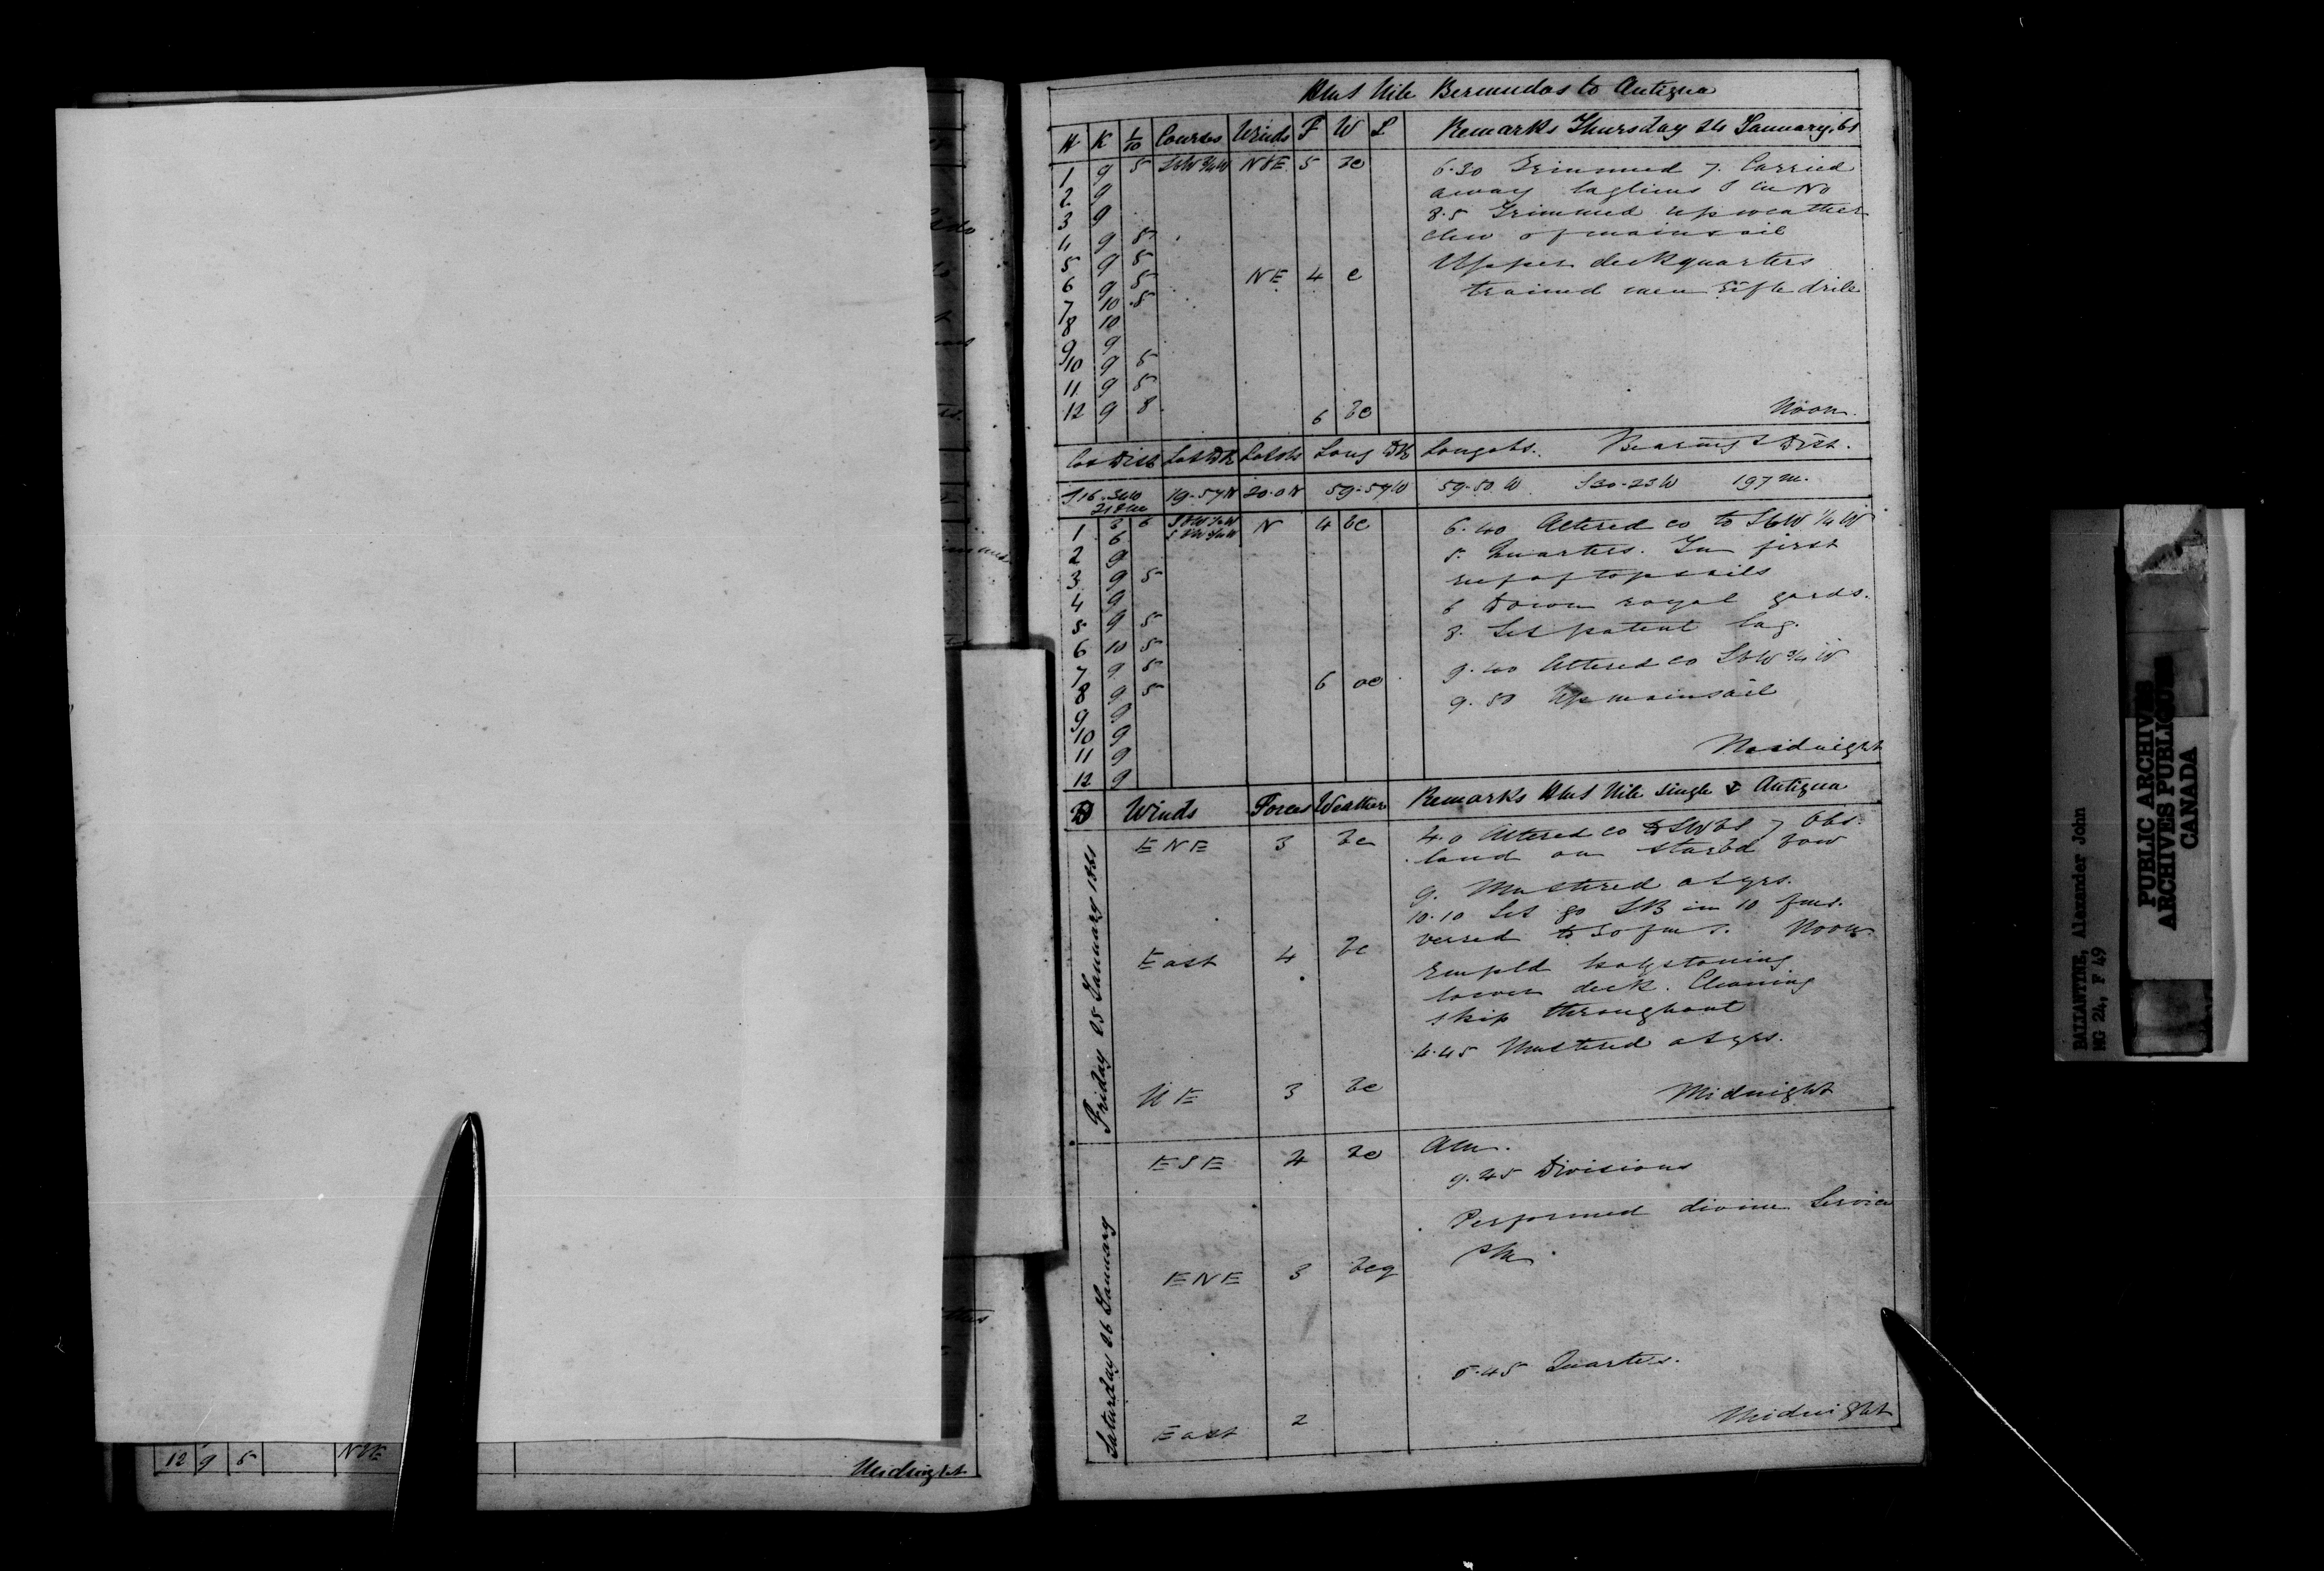 HMS Nile Bermudas to Antigua
H K 1/10 Courses Winds F W L Remarks Thursday 24 January. 61
1 9 5 SbW 3/4 W NbE 5 bc 6.30 Trimmed 7. Carried
2 9 away loglines
3 9 8.5 Trimmed up weather
4 9 5 clew of mainsail
5 9 5 NE 4 c Upper deck quarters
6 9 5 trained men rifle drill
7 10 5
8 10
9 9
10 9 5
11 9 5
12 9 8 6 bc Noon
Co & Dist Lat DR Lat obs Long DR Long obs. Bearing & Dist.
19-57N 20.0N 59-59W 59-50 W S30-23W 197 m.
1 3 6 N 4 bc 6.40 Altered co to SbW 1/4 W
6 SbW 3/4 W
2 9 5. Quarters. In first
3 9 5 reef of topsails
4 9 6 Down royal yards.
5 9 5 8. Set patent log.
6 10 5
7 9 5 9.40 Altered co SbW 3/4 W
8 9 5 6 oc 9.50 Up mainsail
9 9
10 9
11 9 Midnight
12 9
D Winds Force Weather Remarks HMS Nile single Antigua
Friday 25 January 1861
ENE 3 bc 4.0 Altered co to SWbS 7 Obs.
land on starbd bow
9. Mustered at qrs.
10.10 Let go SB in 10 fms.
veered to 50 fms. Noon
East 4 bc Empld holystoning
lower deck. Cleaning
ship throughout
4.45 Mustered at qrs.
NE 3 bc Midnight
Saturday 26 January
ESE 4 bc AM.
9.45 Divisions
Performed divine Service
ENE 3 bcq PM.
5.45 Quarters.
East 2 Midnight
12 9 5 NbE Midnight
BALLANTINE, Alexander John
MG 24, F 49
PUBLIC ARCHIVES
ARCHIVES PUBLIQUES
CANADA